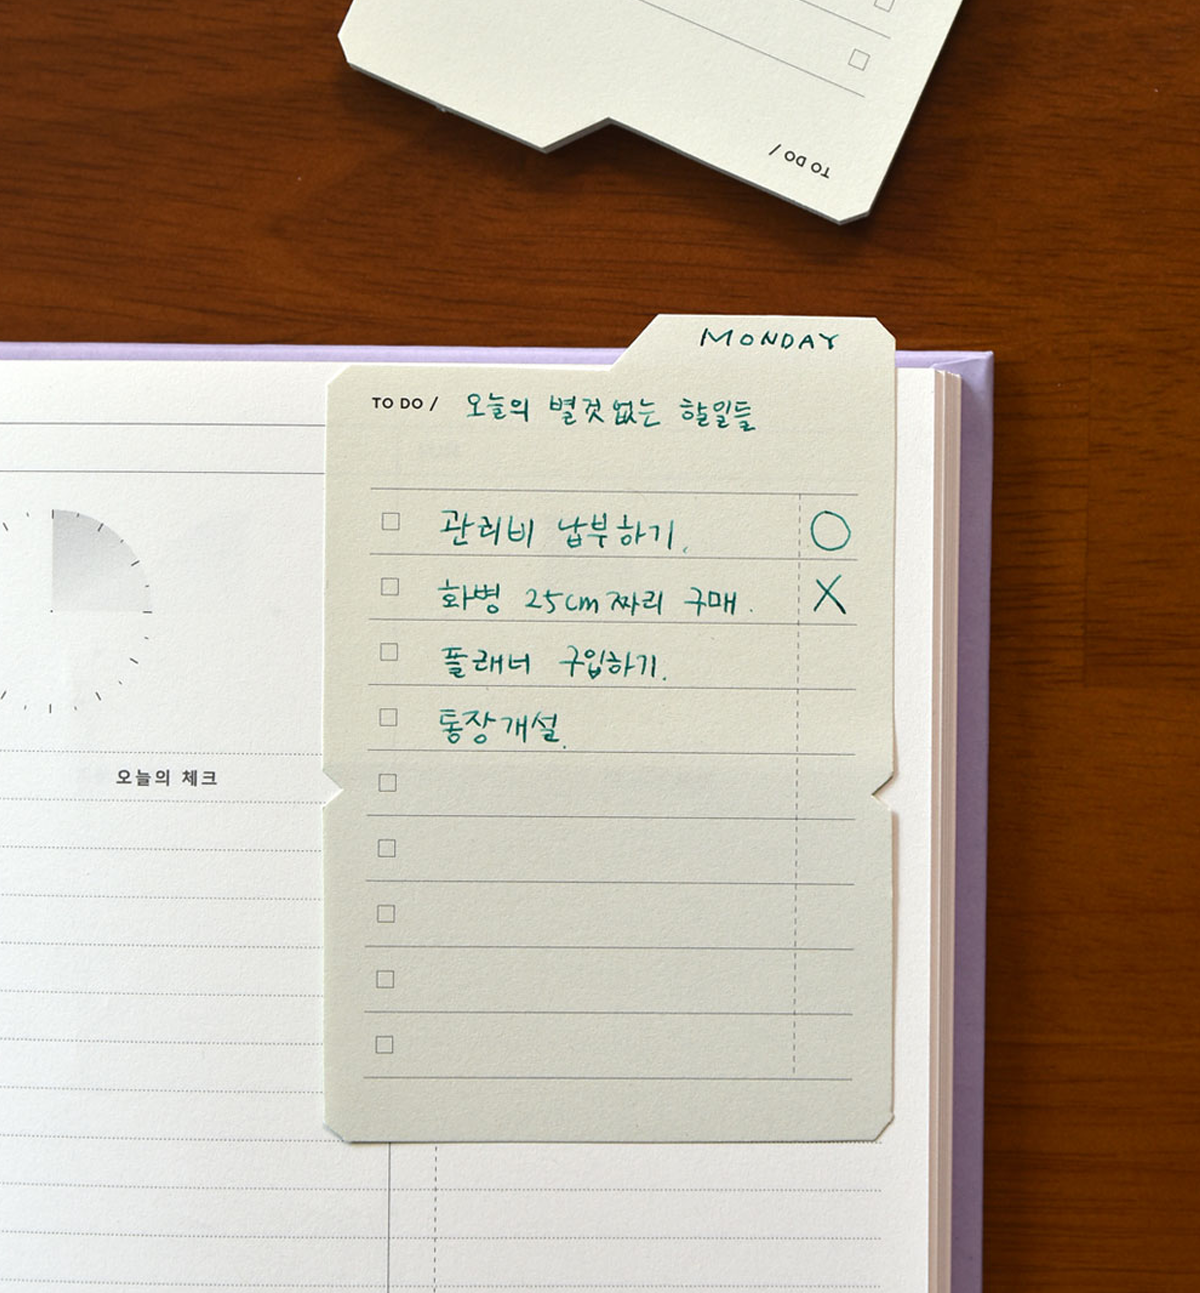 TO DO /
MONDAY
TO DO / 오늘의 별것없는 할일들
관리비 납부하기. O
화병 25cm 짜리 구매. X
플래너 구입하기.
통장개설.
오늘의 체크